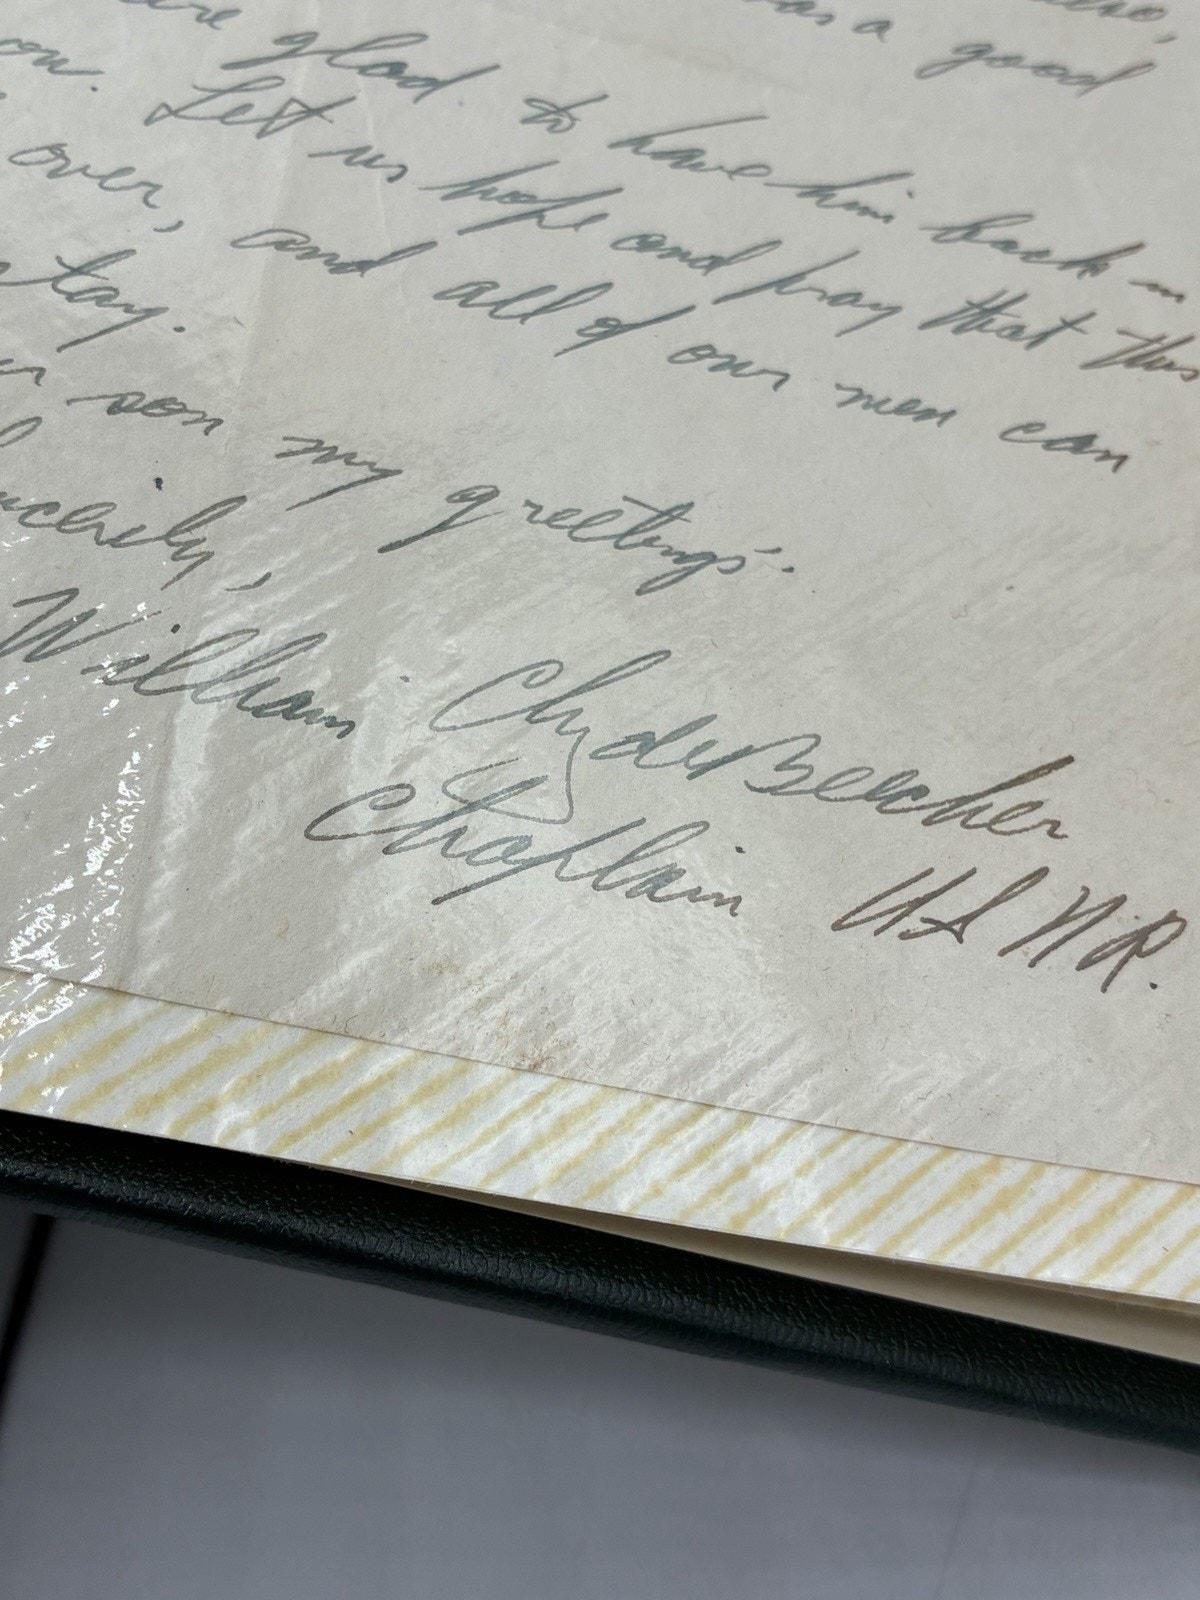 was a good
are glad to have him back in
Let us hope and pray that this
over, and all of our men can
son my greetings.
William Clyde Beecher
Chaplain USNR.